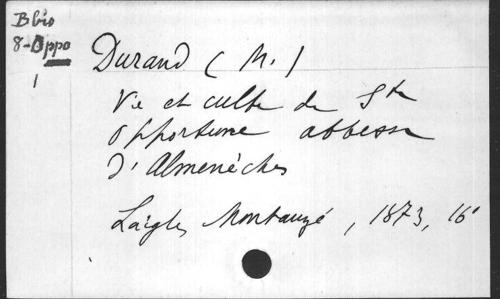 B bio
8-Oppo
1
Durand (M.)
Vie et culte de Ste
Opportune abbesse
d'Almenèches
Laigle, Montauzé, 1873, 16°